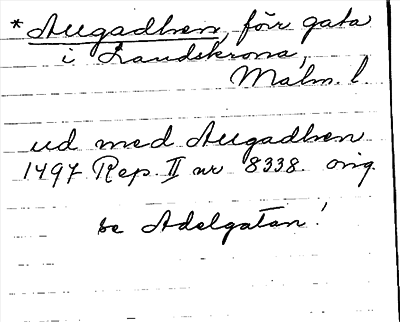 * Augadhen, för gata
i Landskrona,
Malm. l.
ud med Augadhen
1497 Rep. II nr 8338. orig.
se Adelgatan!